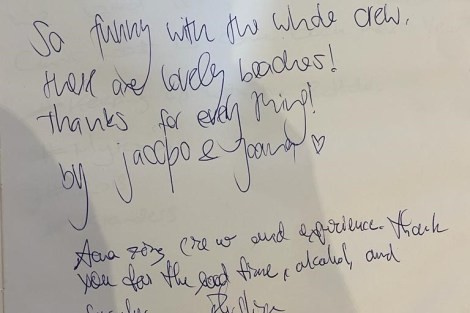 So funny with the whole crew.
there are lovely beaches!
Thanks for every thing!
by jacopo & Joanna ♡
Amazing crew and experience. thank
you for the good time, alcohol, and